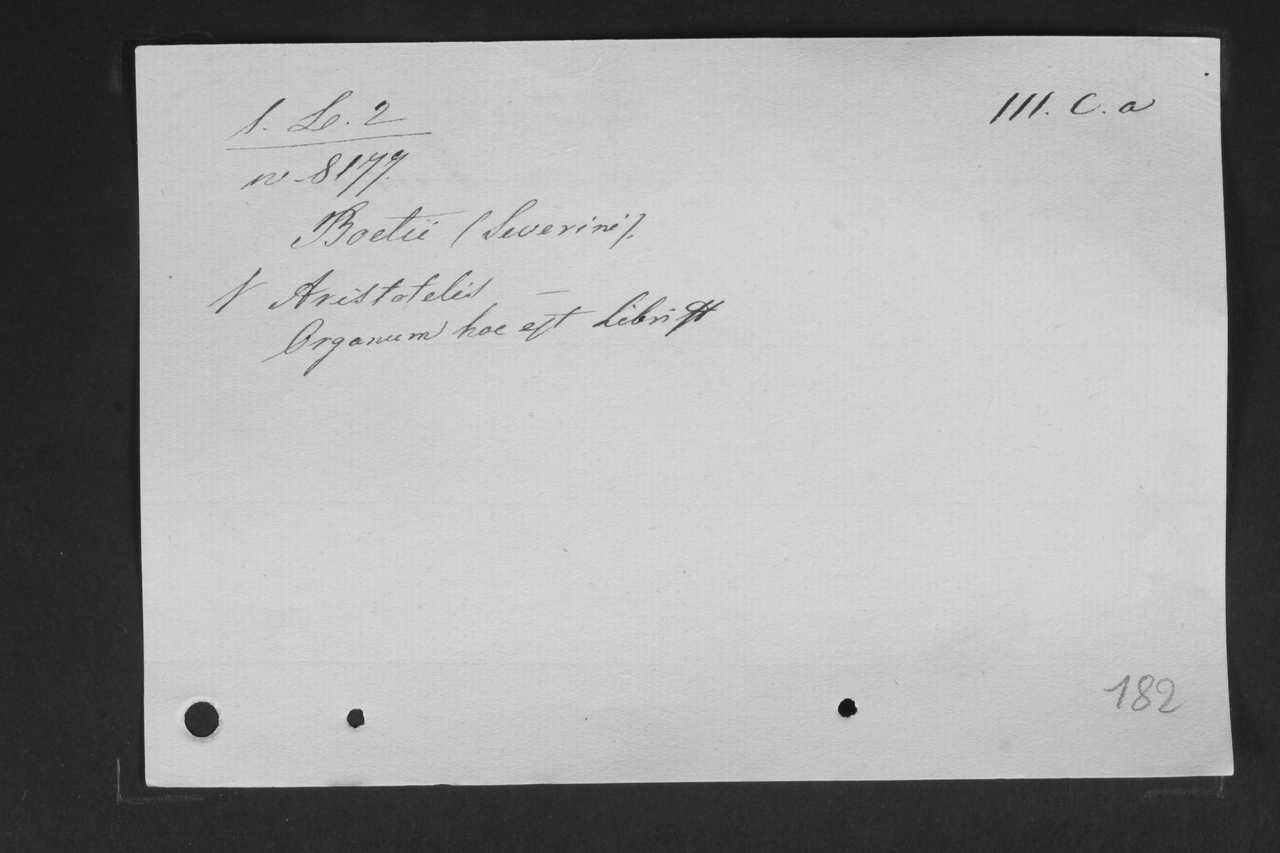 III. C. a
1. Le. 2
nr. 8177.
Boetii (Severini).
V Aristotelis —
Organum hoc est Libri
182